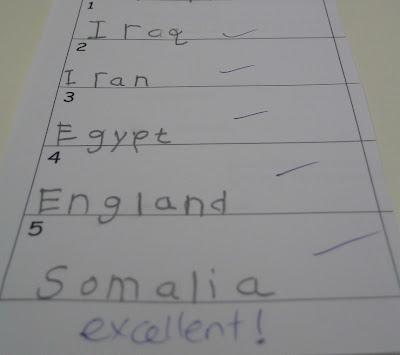 1
Iraq
2
Iran
3
Egypt
4
England
5
Somalia
excellent!